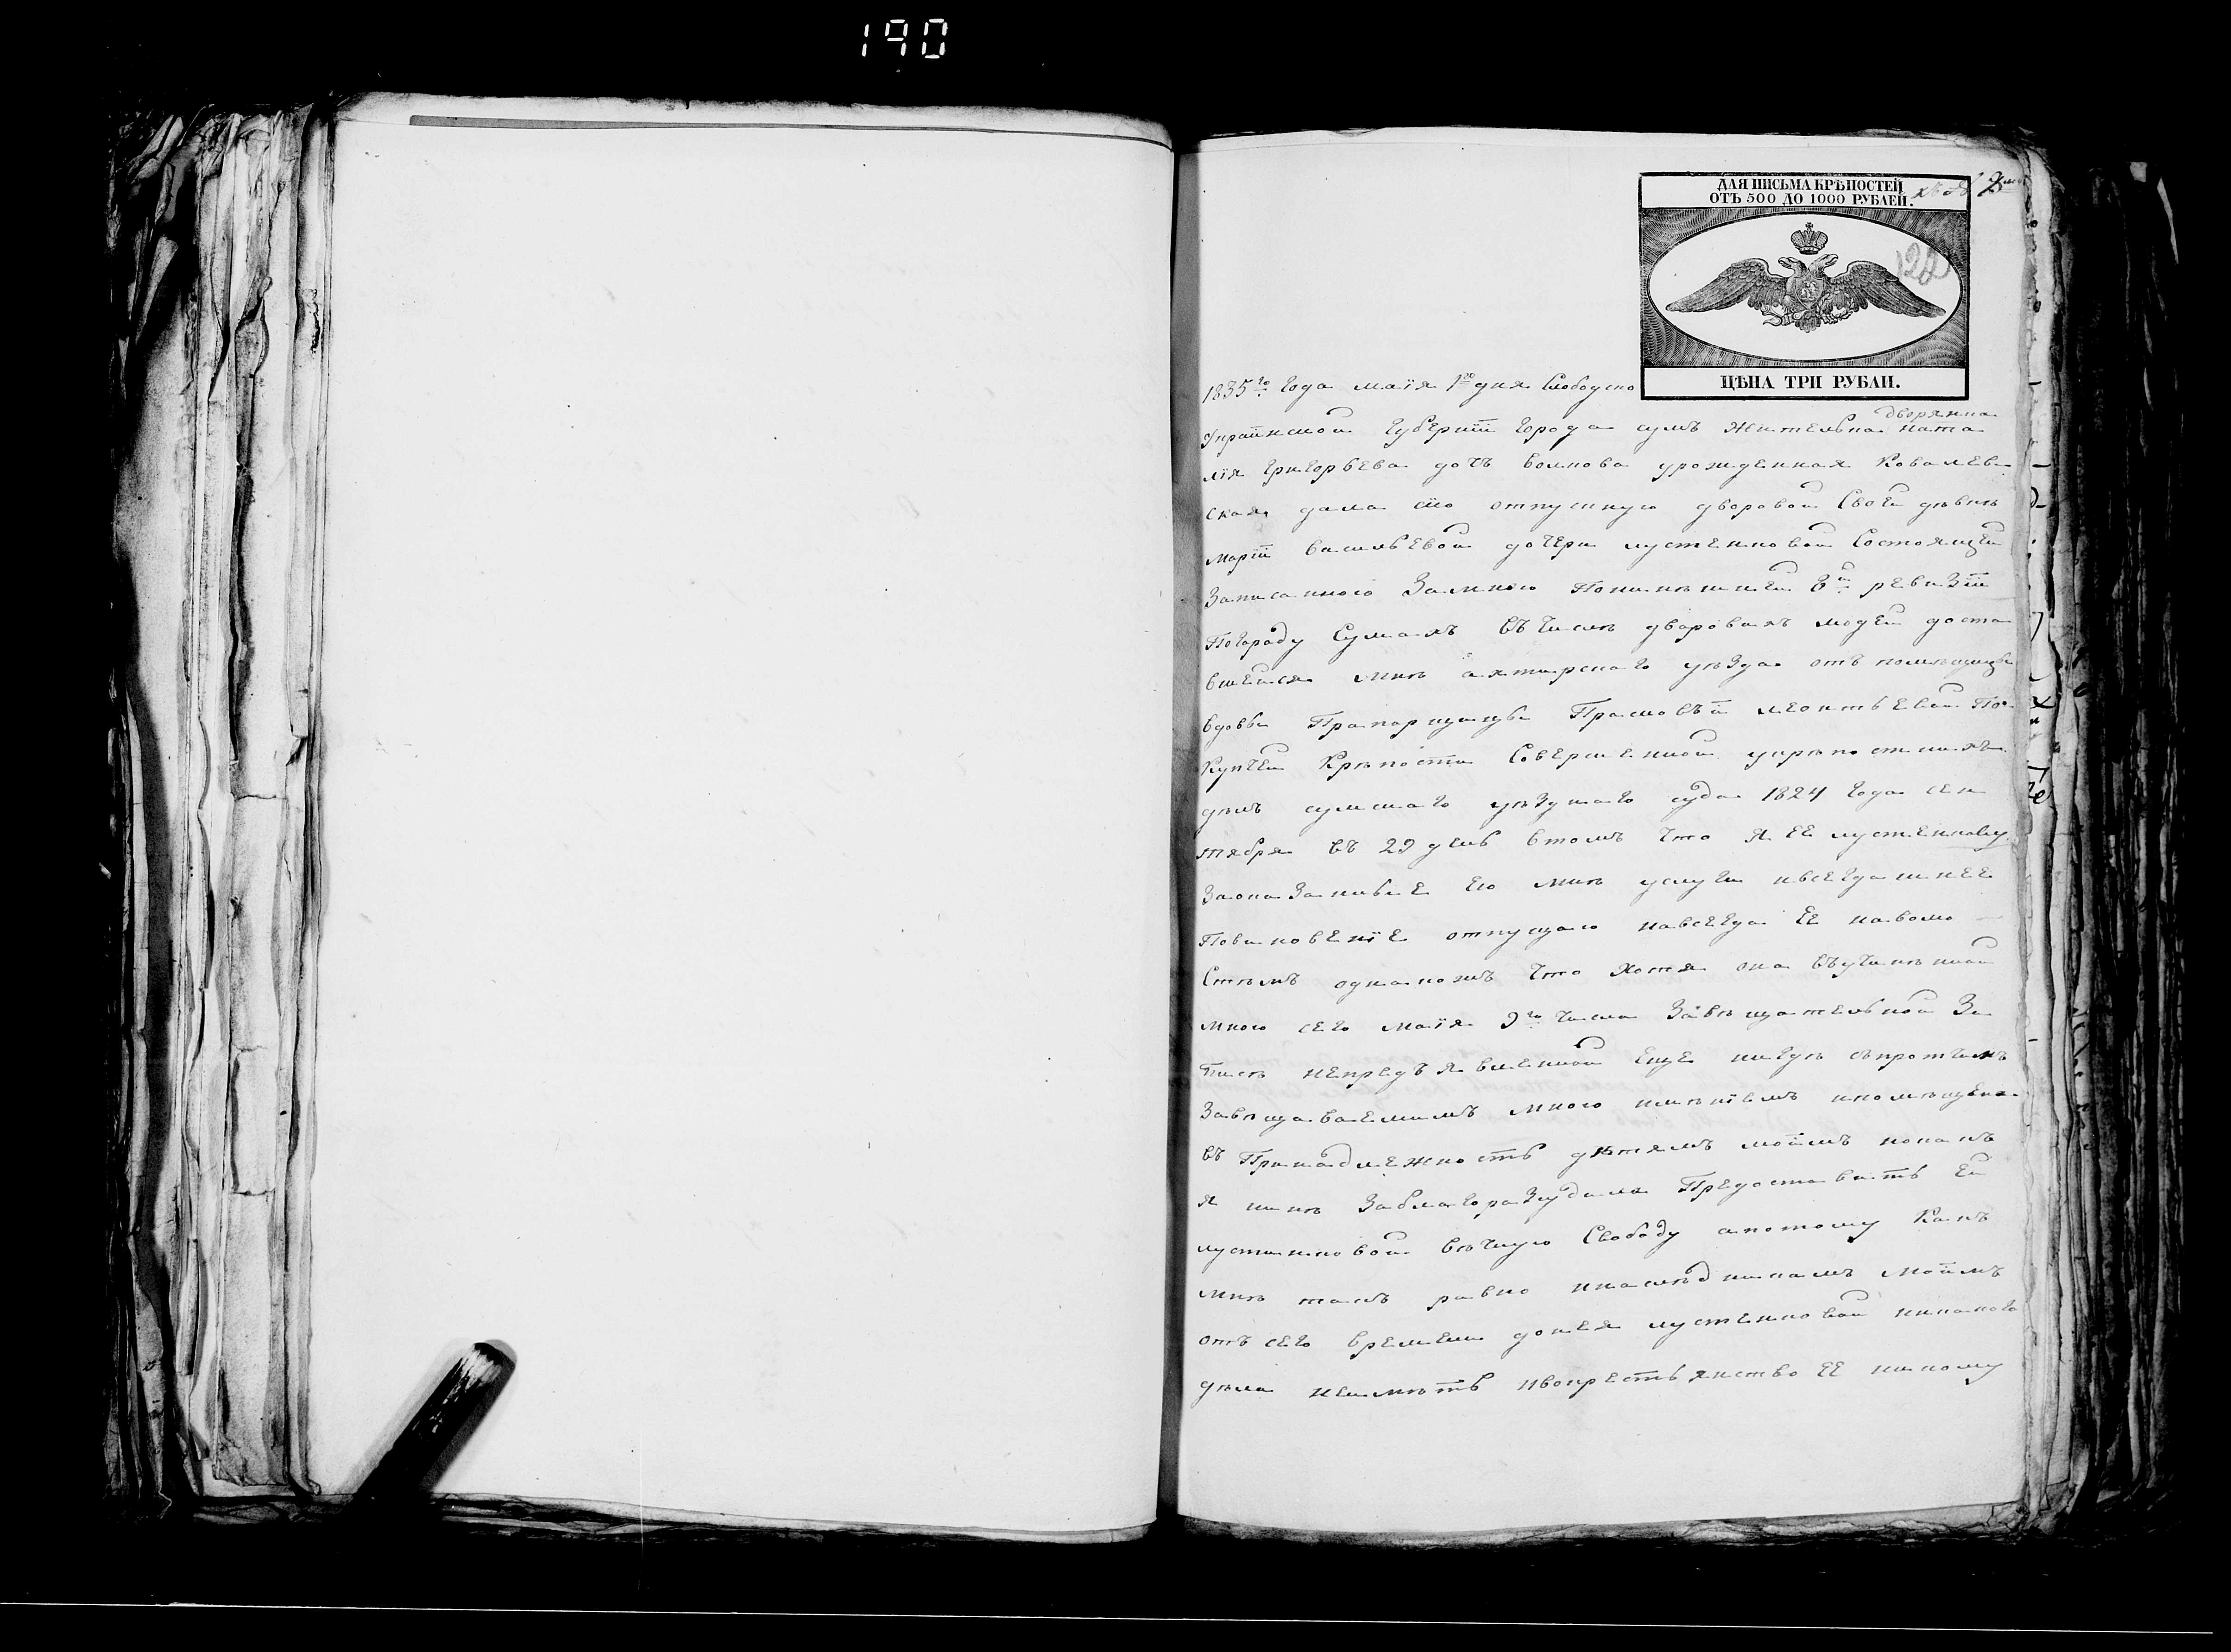 190
ДЛЯ ПИСЬМА КРѢПОСТЕЙ
ОТЪ 500 ДО 1000 РУБЛЕЙ.
122
ЦѢНА ТРИ РУБЛИ.
1835го Года маія 1го дня Слободско
дворянка
Украинской Губерніи Города сумъ Жителька Ната
лія Григорьева дочь волкова урожденная Ковалев
ская дала сію отпускную дворовой Своей девкѣ
Маріи васильевой дочери лустенковой Состоящей
Записанною Замною Понынѣшней 8й ревизіи
Погораду Сумамъ въ числѣ дворовыхъ людей доста
вшейся мнѣ ахтырскаго уѣзда отъ помѣщицы
вдовы Прапорщицы Прасковьи леонтьевой По
Купчей Крѣпости Совершенной укрѣпостныхъ
дѣлъ сумскаго уѣзднаго суда 1824 Года сен
тября въ 29 день втомъ что я ее лустенкову
Заоказанные Ею мнѣ услуги ивсегдашнее
Повиновеніе отпущаю навсегда Ее наволю
Стѣмъ однакожъ что хотя она въучиненной
мною сего маія 9го числа Завѣщательной За
писѣ непредъявленной еще нигдѣ съпротчимъ
Завѣщаваемымъ мною имѣніемъ ипомѣщена
въ Принадлежность дѣтямъ моимъ нокакъ
я нынѣ Заблагоразсудила Предоставить Ей
лустенковой вѣчную Свободу апотому Какъ
мнѣ такъ равно инаследникамъ моимъ
отъ сего времени донея лустенковой никакого
дѣла неимѣть ивокрестьянство ее никому